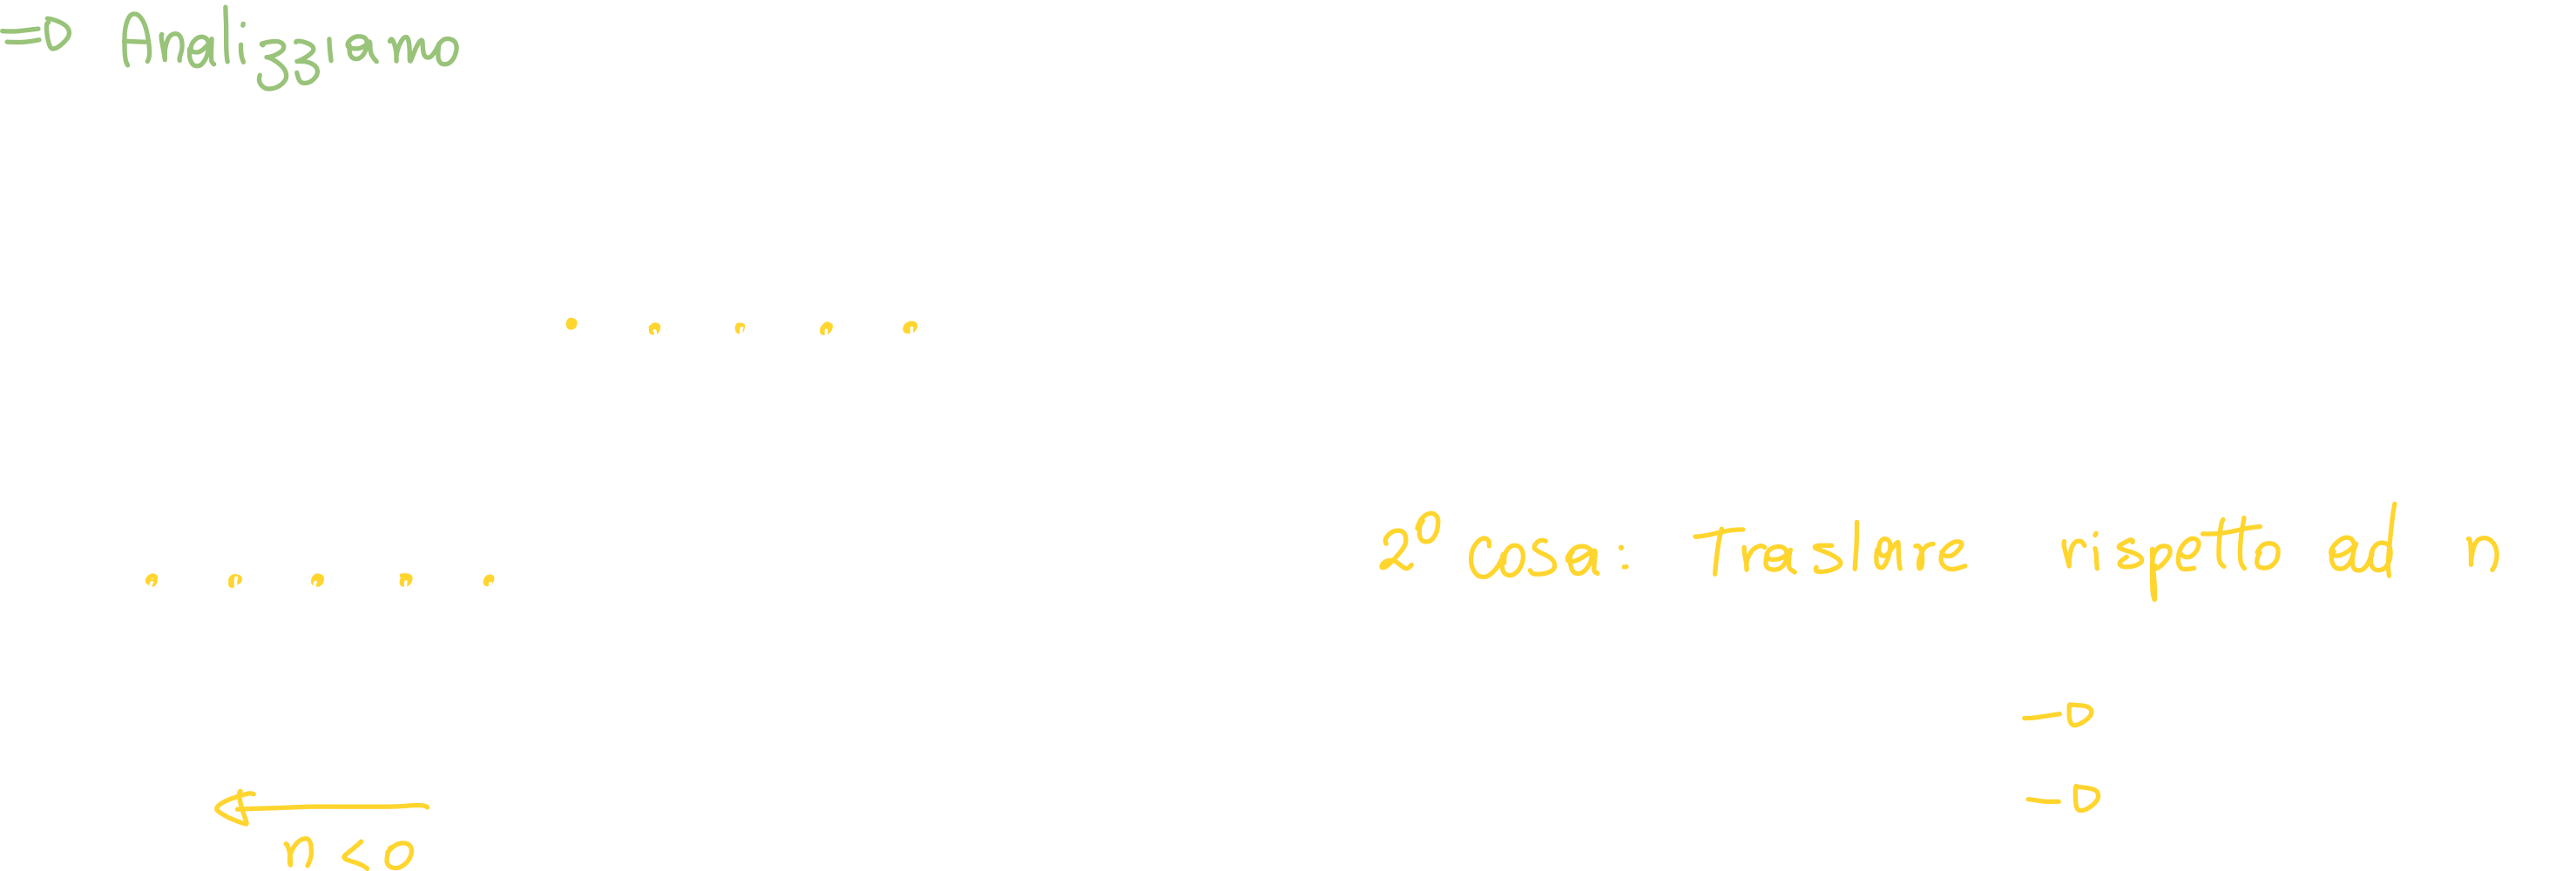 => Analizziamo
. . . . .
2° cosa: Traslare rispetto ad n
. . . . .
->
->
<-
n < 0